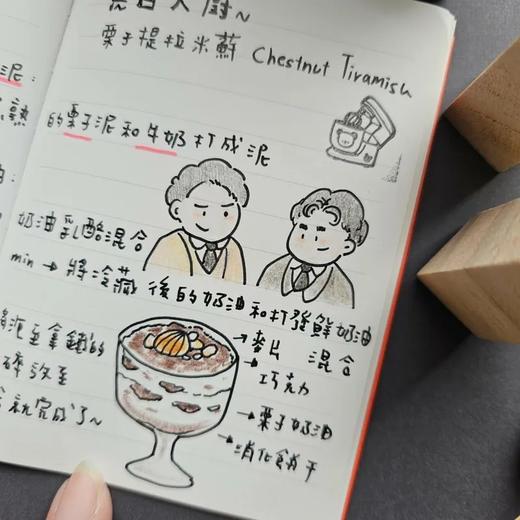 大廚~
栗子提拉米蘇 Chestnut Tiramisu
泥:
熟
的栗子泥和牛奶打成泥
油:
奶油乳酪混合
min → 將冷藏後的奶油和打發鮮奶油
混合
→ 麥片
→ 巧克力
→ 栗子奶油
→ 消化餅干
碎放至
就完成了~